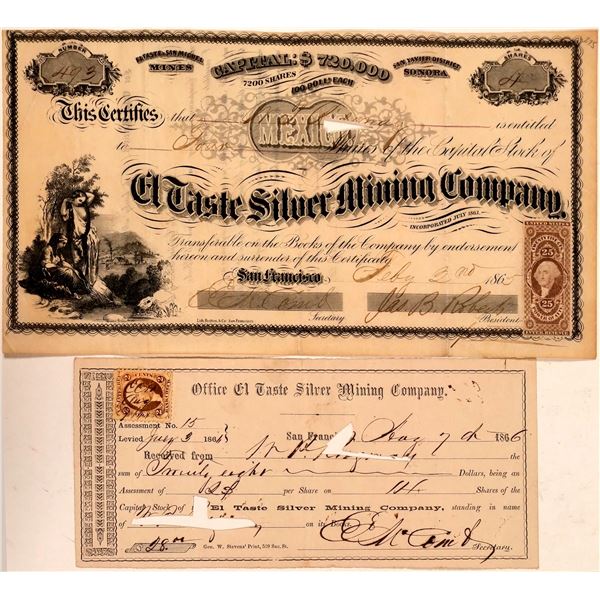 NUMBER 493
EL TASTE & SAN MIGUEL
MINES
CAPITAL: $ 720,000
7200 SHARES 100 DOLLS EACH
SAN XAVIER DISTRICT
SONORA
SHARES 4
This Certifies that is entitled
MEXICO
to Four Shares of the Capital Stock of
El Taste Silver Mining Company.
INCORPORATED JULY 1861.
Transferable on the Books of the Company by endorsement
hereon and surrender of this Certificate
San Francisco Feby 2nd 186
Secretary President
Lith. Britton & Co. San Francisco.
25 25
INTER. REVENUE
2 CENTS 2
Office El Taste Silver Mining Company.
Assessment No. 15
Levied July 3 186
San Francisco 7th 1866
Received from
sum of Twenty eight Dollars, being an
Assessment of $2 per Share on 14 Shares of the
Capital Stock of El Taste Silver Mining Company, standing in name
of on its Books.
$28.00
Geo. W. Stevens' Print, 529 Sac. St.
Secretary.